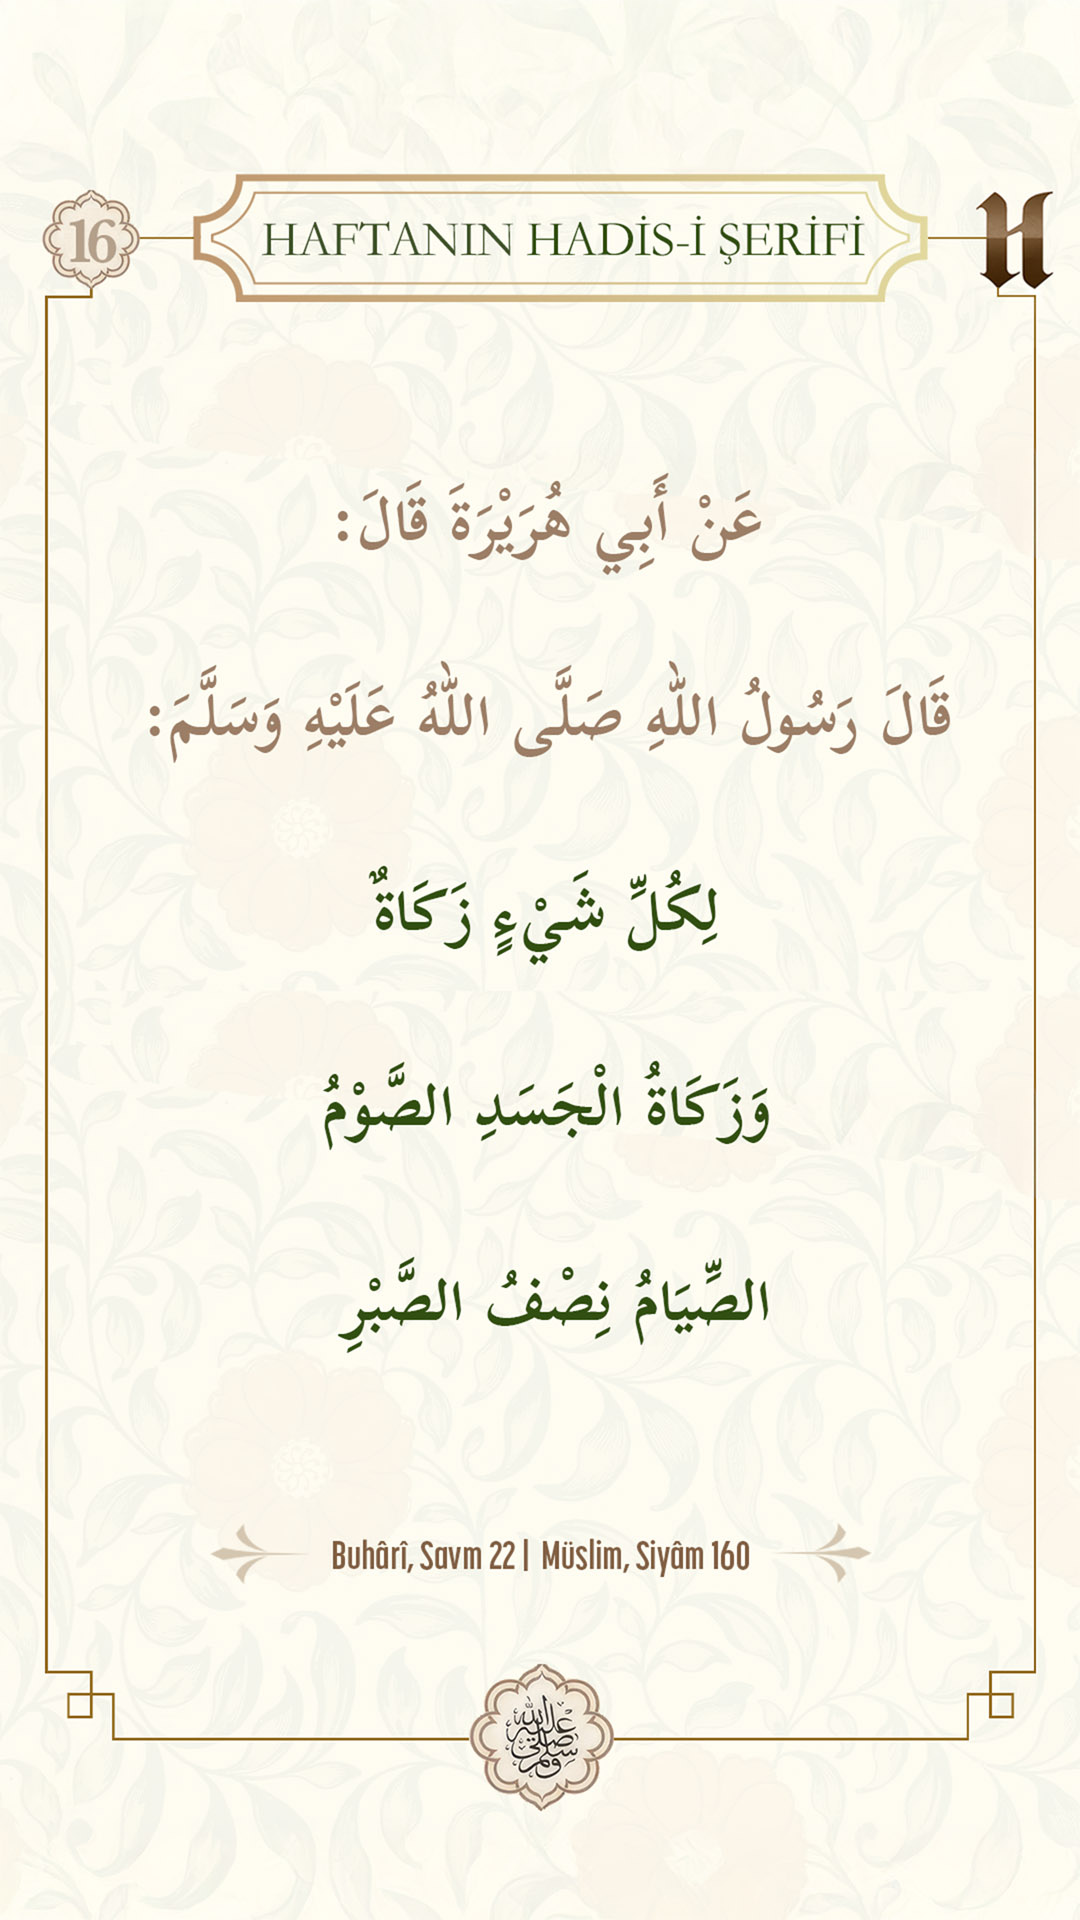 16
HAFTANIN HADİS-İ ŞERİFİ
H
عَنْ أَبِي هُرَيْرَةَ قَالَ:
قَالَ رَسُولُ اللهِ صَلَّى اللهُ عَلَيْهِ وَسَلَّمَ:
لِكُلِّ شَيْءٍ زَكَاةٌ
وَزَكَاةُ الْجَسَدِ الصَّوْمُ
الصِّيَامُ نِصْفُ الصَّبْرِ
Buhârî, Savm 22 | Müslim, Siyâm 160
صلى الله عليه وسلم